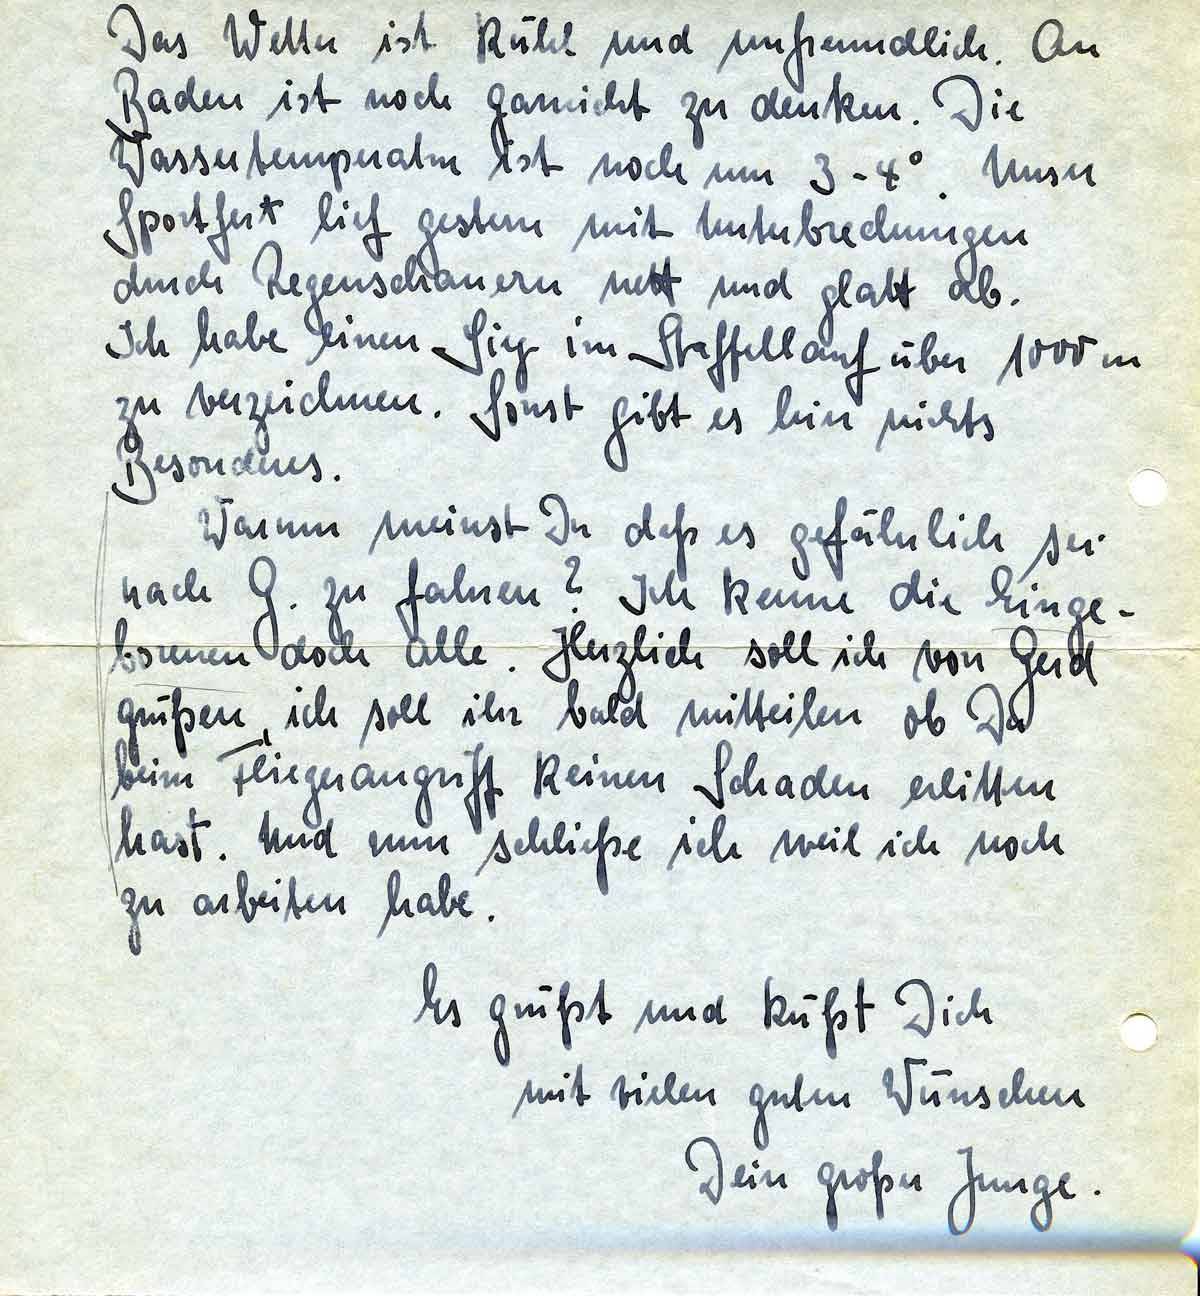 Das Wetter ist kühl und unfreundlich. An
Baden ist noch garnicht zu denken. Die
Wassertemperatur ist noch um 3-4°. Unser
Sportfest lief gestern mit Unterbrechungen
durch Regenschauern nett und glatt ab.
Ich habe einen Sieg im Staffellauf über 1000 m
zu verzeichnen. Sonst gibt es hier nichts
Besonderes.
Warum meinst Du daß es gefährlich sei
nach G. zu fahren? Ich kenne die Einge-
borenen doch alle. Herzlich soll ich von Gerd
grüßen, ich soll ihr bald mitteilen ob Du
beim Fliegerangriff keinen Schaden erlitten
hast. Und nun schließe ich weil ich noch
zu arbeiten habe.
Es grüßt und küßt Dich
mit vielen guten Wünschen
Dein großer Junge.